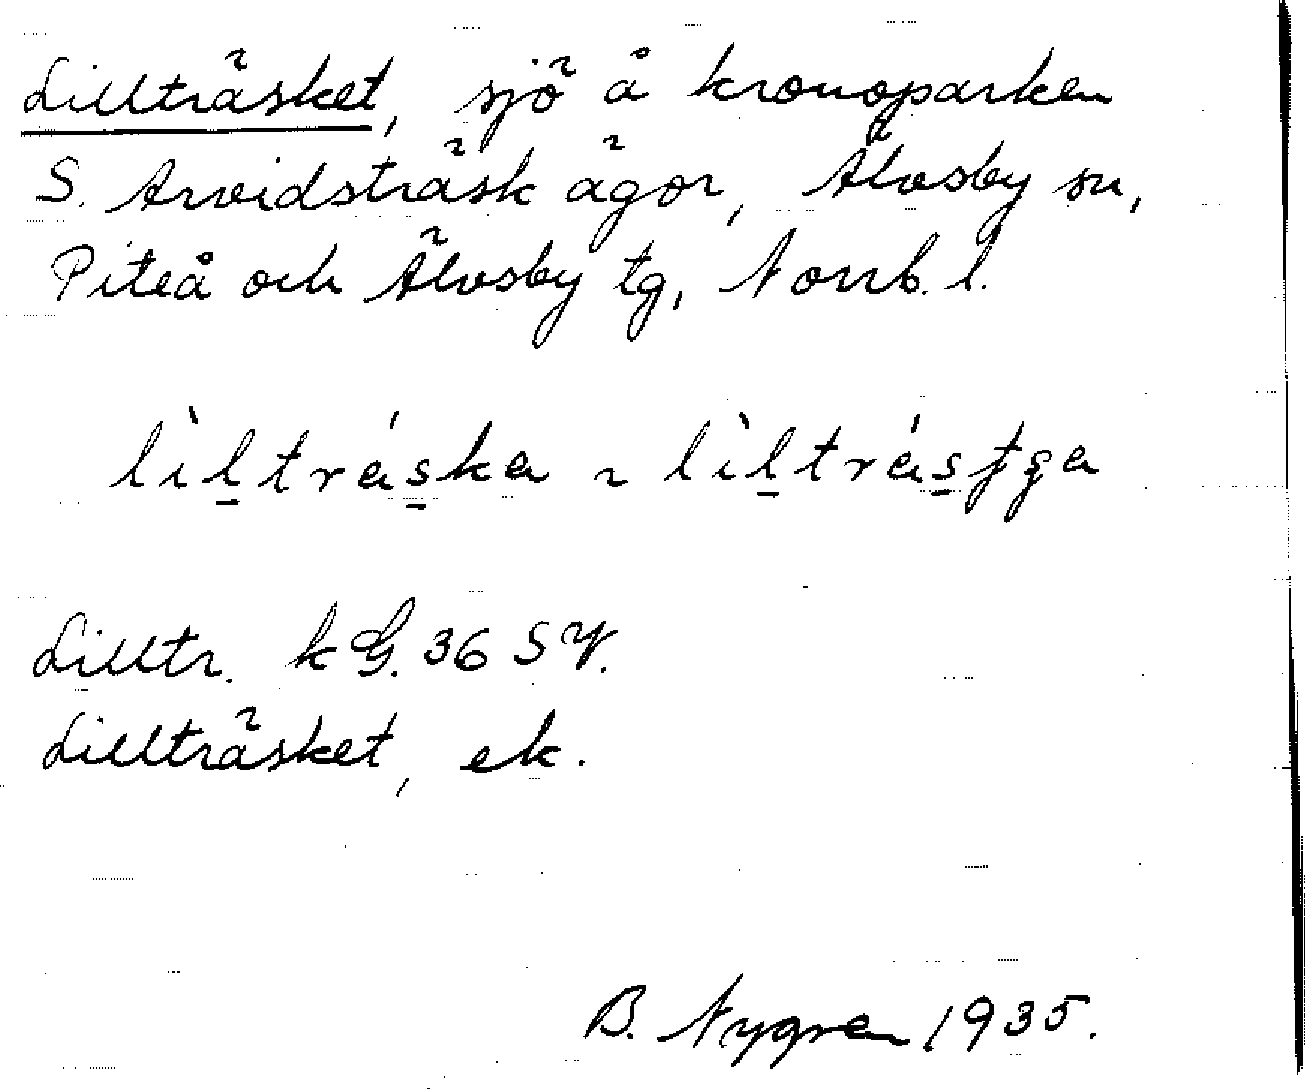 Lillträsket, sjö å kronoparken
S. Arvidsträsk ägor, Älvsby sn,
Piteå och Älvsby tg, Norrb. l.
lìltráska ~ lìltrásʄga
Lilltr. kG. 36 SV.
Lillträsket, ek.
B. Nygren 1935.